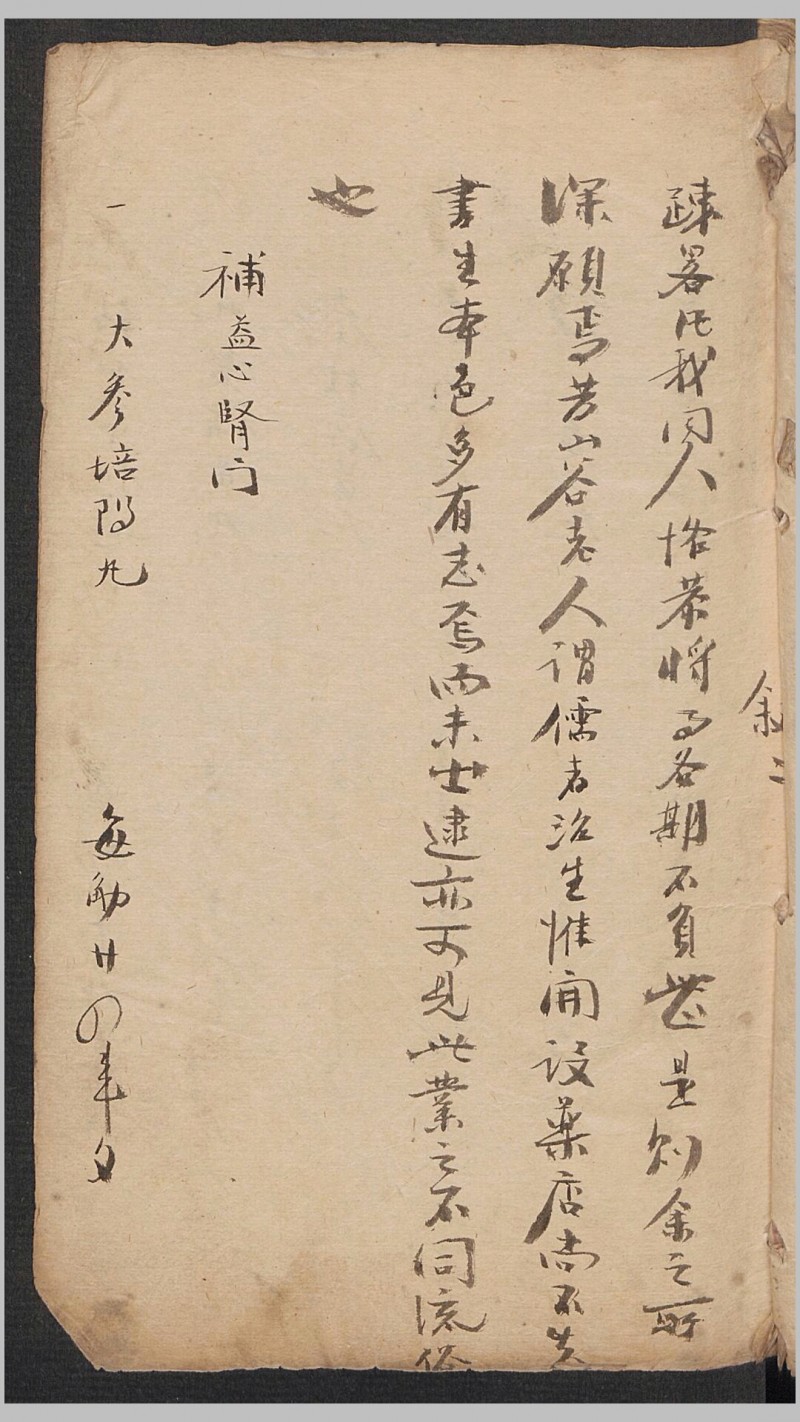 叙二
踈畧凡我同人恪恭将事各期不負此是则余之所
深願焉昔山谷老人謂儒者治生惟開設藥店尚不失
書生本色多有志焉而未逮亦可見此業之不同流俗
也
補益心腎门
一 大參培陽丸 每觔廿四